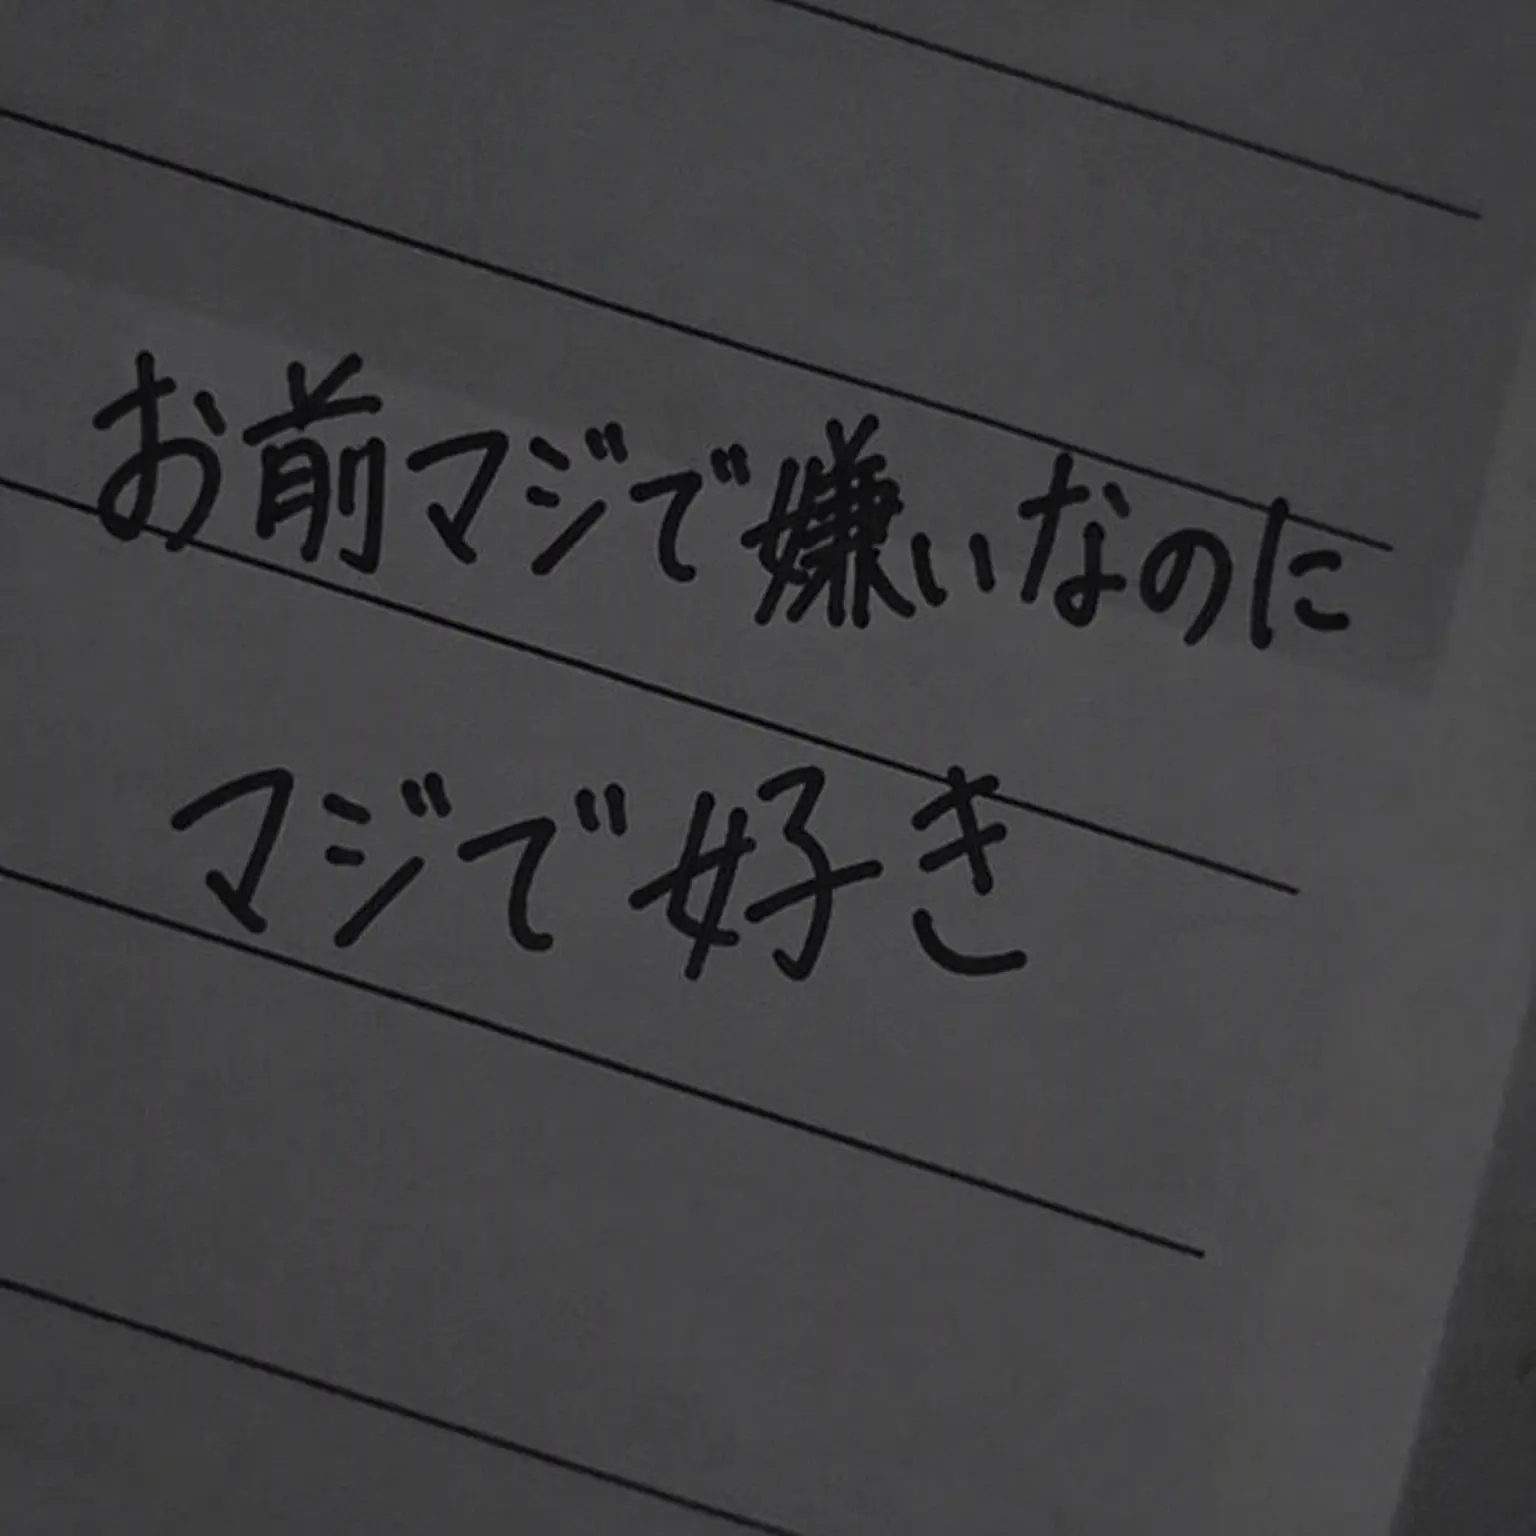 お前マジで嫌いなのに
マジで好き